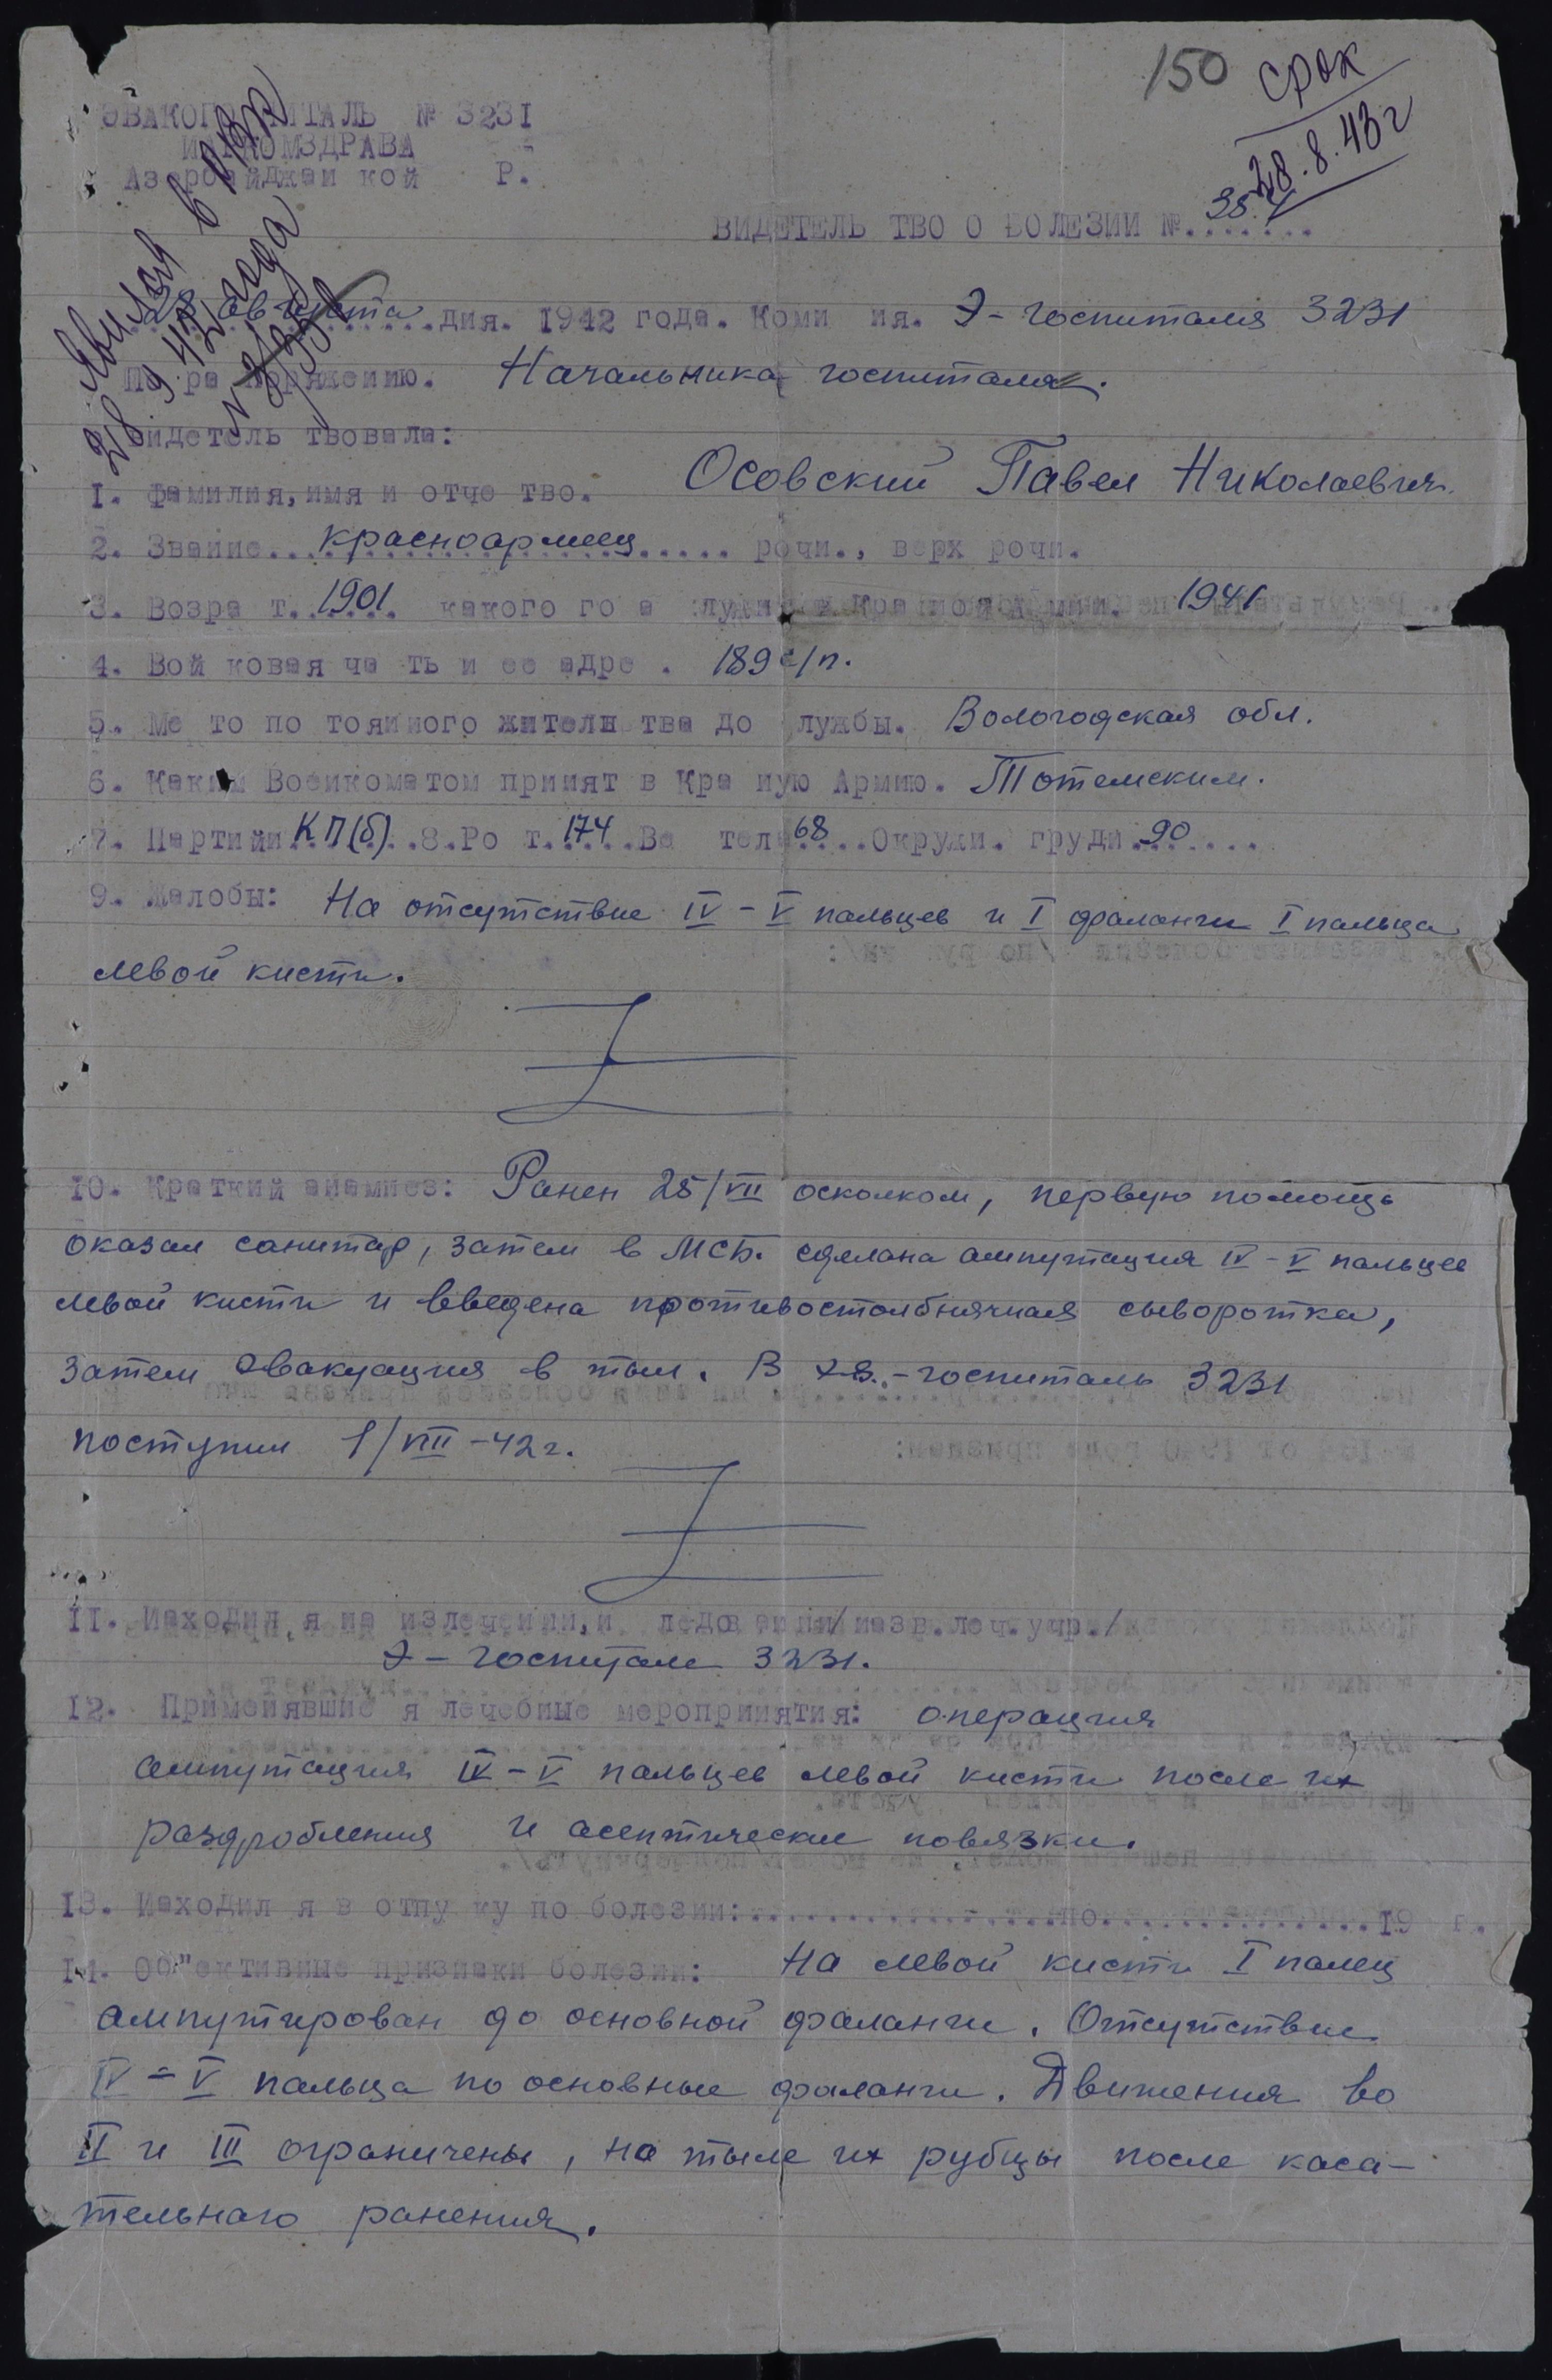 150
срок
28.8.43 г
ЭВАКОГ ИТАЛЬ № 3231
НАРКОМЗДРАВА
Аз рбайджан кой Р.
Явился в
28 9 42 года
ВИДЕТЕЛЬ ТВО О БОЛЕЗНИ №........
28 августа дня. 1942 года. Коми ия. Э - госпиталя 3231
По ра поряжению. Начальника госпиталя.
идетель твовала:
1. Фамилия, имя и отче тво. Осовский Павел Николаевич.
2. Звание... красноармеец ..... рочн., верх рочн.
3. Возра т.. 1901. какого го а лужи в Кра ной А мии. 1941
4. Вой ковая ча ть и ее адре . 189 с/п.
5. Ме то по тоянного жительн тва до лужбы. Вологодская обл.
6. Каким Военкоматом принят в Кра ную Армию. Тотемским.
7. Партийн К П(б)..8.Ро т. 174 ..Ве тела 68 ..Окружн. груди 90 .....
9. Жалобы: На отсутствие IV - V пальцев и I фаланги I пальца
левой кисти.
10. Краткий анамнез: Ранен 25/VII осколком, первую помощь
оказал санитар, затем в МСБ. сделана ампутация IV - V пальцев
левой кисти и введена противостолбнячная сыворотка,
затем эвакуация в тыл. В -госпиталь 3231
поступил 1/VIII -42 г.
11. Находил я на излечении, и ледов ании/назв.леч.учр./
Э - госпитале 3231.
12. Применявшие я лечебные мероприятия: операция
ампутация IV - V пальцев левой кисти после их
раздробления и асептические повязки.
13. Находил я в отпу ку по болезни:..................по..............19 г.
14. Об"ективные признаки болезни: На левой кисти I палец
ампутирован до основной фаланги. Отсутствие
IV - V пальца по основные фаланги. Движения во
II и III ограничены, на тыле их рубцы после каса-
тельного ранения.